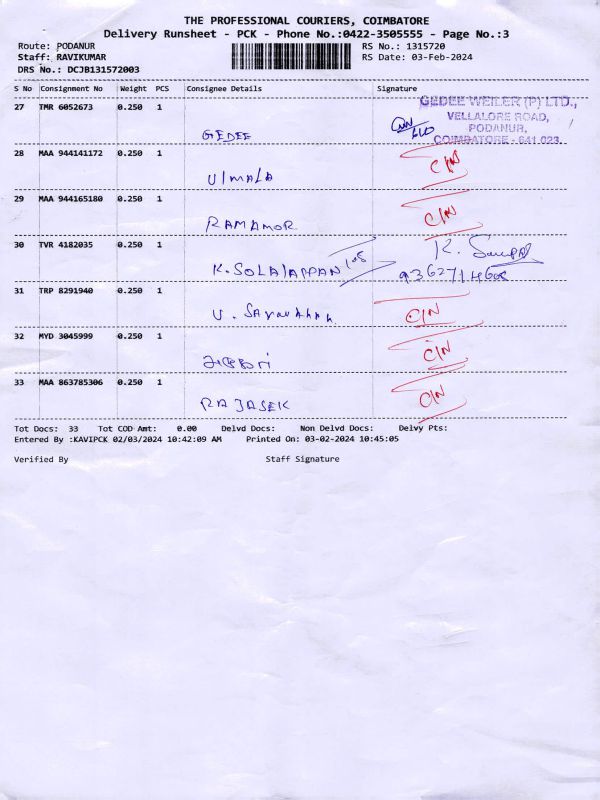 THE PROFESSIONAL COURIERS, COIMBATORE
Delivery Runsheet - PCK - Phone No.:0422-3505555 - Page No.:3
Route: PODANUR RS No.: 1315720
Staff: RAVIKUMAR RS Date: 03-Feb-2024
DRS No.: DCJB131572003
S No Consignment No Weight PCS Consignee Details Signature
27 TMR 6052673 0.250 1
GEDEE
GEDEE WEILER (P) LTD.,
VELLALORE ROAD,
PODANUR,
COIMBATORE - 641 023.
28 MAA 944141172 0.250 1
VIMALA C/N
29 MAA 944165180 0.250 1
RAMAMOR C/N
30 TVR 4182035 0.250 1
K. SOLAIAPPAN K.
31 TRP 8291940 0.250 1
V. C/N
32 MYD 3045999 0.250 1
C/N
33 MAA 863785306 0.250 1
RAJASEK C/N
Tot Docs: 33 Tot COD Amt: 0.00 Delvd Docs: Non Delvd Docs: Delvy Pts:
Entered By :KAVIPCK 02/03/2024 10:42:09 AM Printed On: 03-02-2024 10:45:05
Verified By Staff Signature